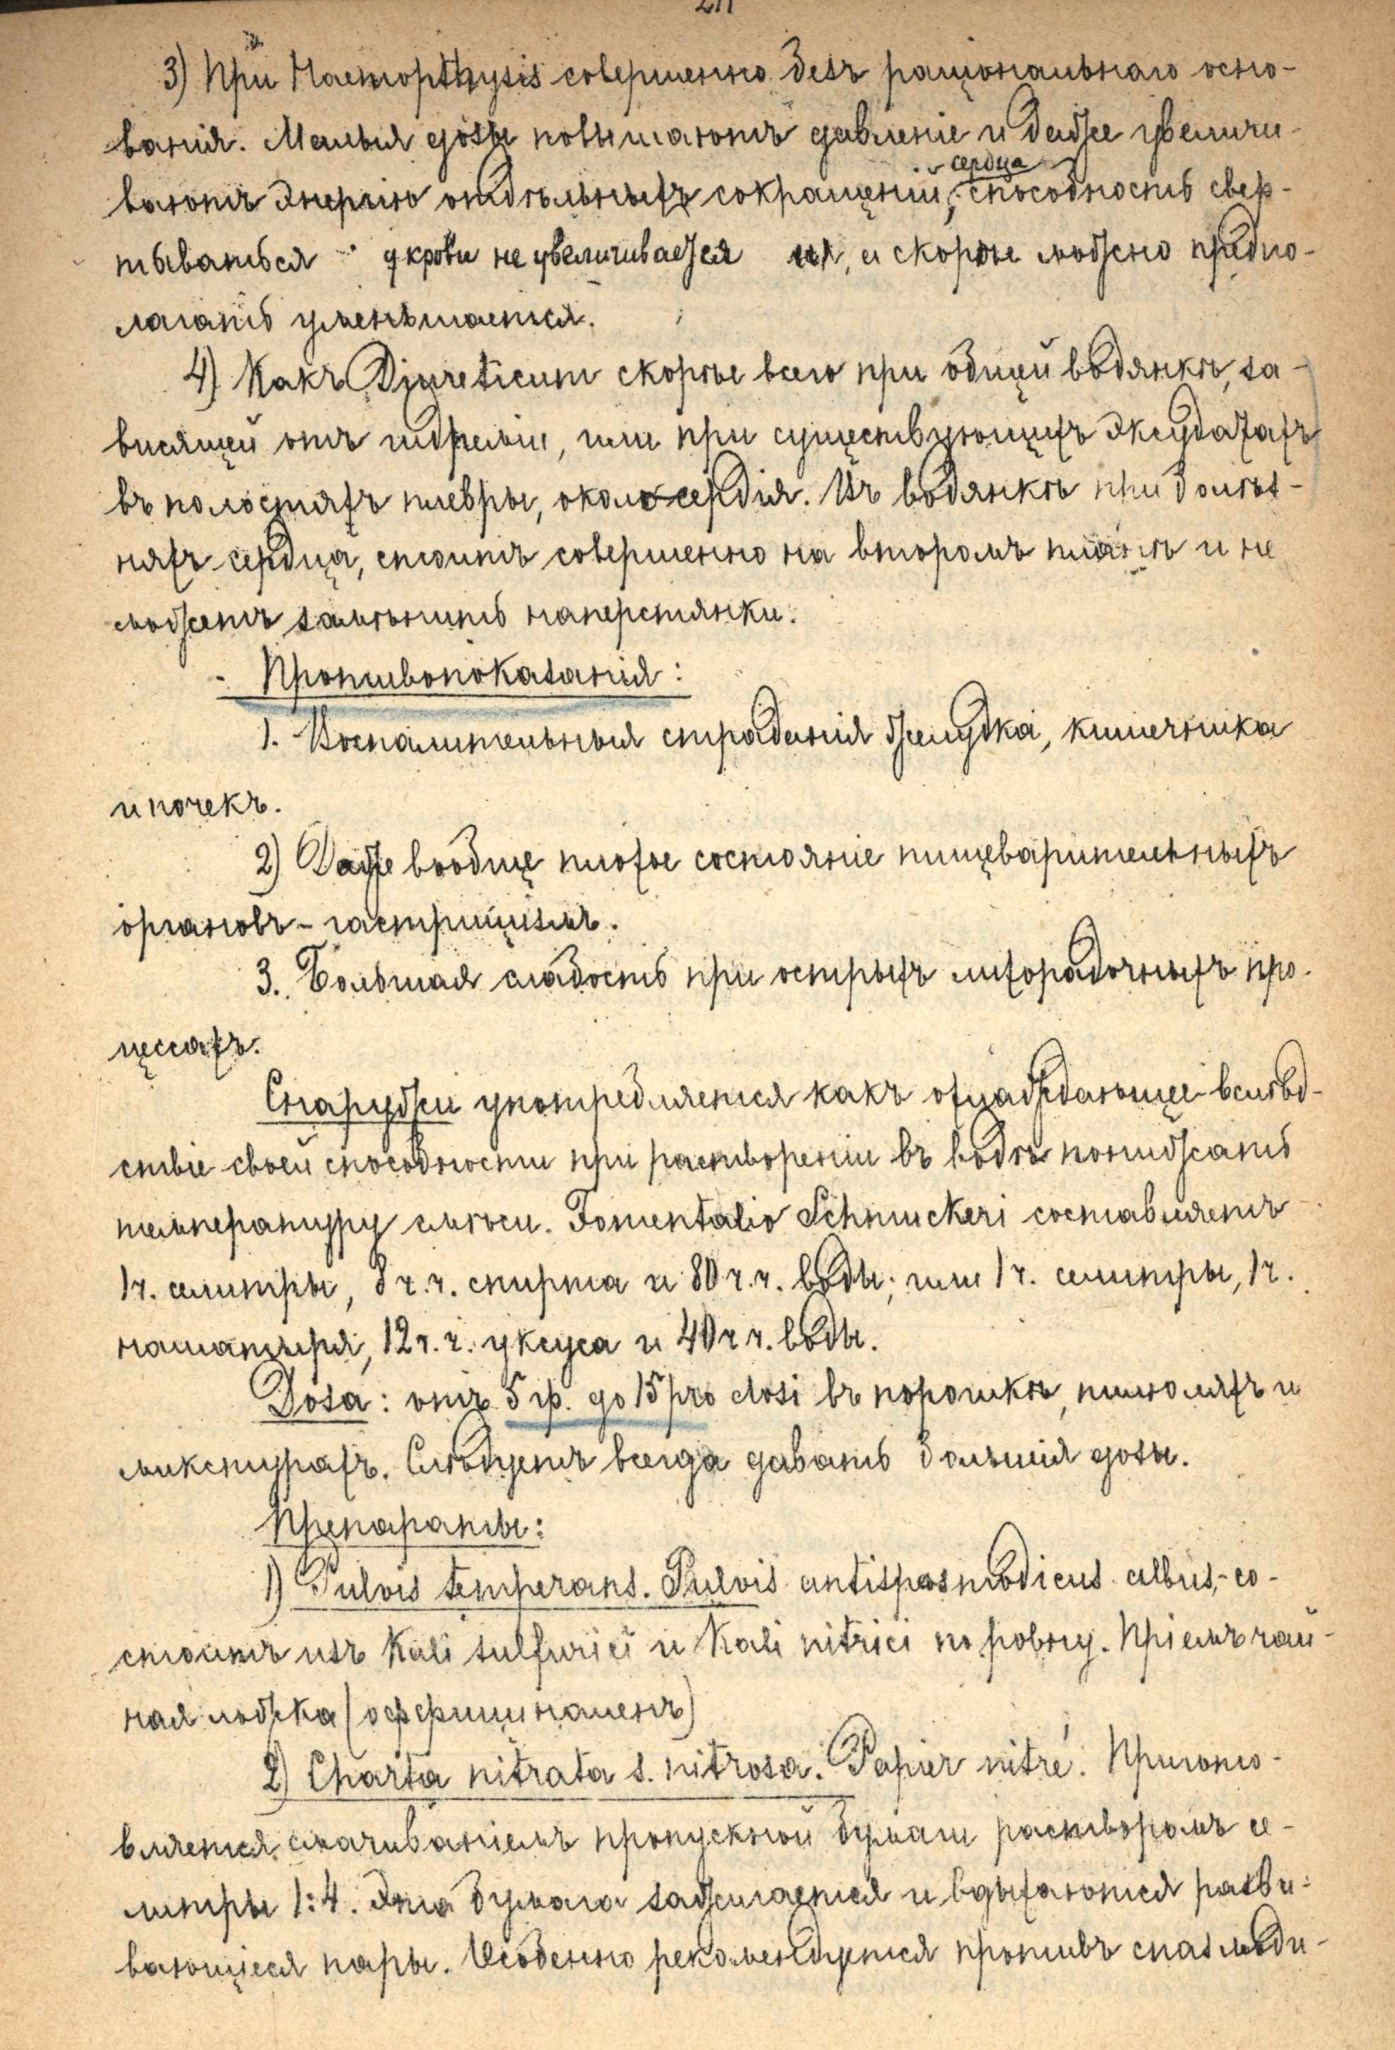 3) При Haemopthysis совершенно безъ раціональнаго осно-
ванія. Малыя дозы повышаютъ давленіе и даже увеличи-
сердца
ваютъ энергію отдѣльныхъ сокращеній, способность свер-
тываться у крови не увеличивается, и скорѣе можно предпо-
лагать уменьшается.
4) Какъ Diureticum скорѣе всего при общей водянкѣ, за-
висящей отъ гидреміи, или при существующихъ эксудатахъ
въ полостяхъ плевры, околосердія. Въ водянкѣ при болѣз-
няхъ сердца, стоитъ совершенно на второмъ планѣ и не
можетъ замѣнить наперстянки.
Противопоказанія:
1. Воспалительныя страданія желудка, кишечника
и почекъ.
2) Даже вообще плохое состояніе пищеварительныхъ
органовъ - гастрицизмъ.
3. Большая слабость при острыхъ лихорадочныхъ про-
цессахъ.
Снаружи употребляется какъ охлаждающее вслѣд-
ствіе своей способности при раствореніи въ водѣ понижать
температуру смѣси. Fomentatio Schmuckeri составляетъ
1 ч. селитры, 8 ч.ч. спирта и 80 ч.ч. воды; или 1 ч. селитры, 1 ч.
нашатыря, 12 ч.ч. уксуса и 40 ч ч. воды.
Dosa: отъ 5 гр. до 15 pro dosi въ порошкѣ, пилюляхъ и
микстурахъ. Слѣдуетъ всегда давать большія дозы.
Препараты:
1) Pulvis temperans. Pulvis antispasmodicus albus,- со-
стоитъ изъ Kali sulfurici и Kali nitrici по ровну. Пріемъ чай-
ная ложка (оффициналенъ)
2) Charta nitrata s. nitrosa. Papier nitré. Пригото-
вляется смачиваніемъ пропускной бумаги растворомъ се-
литры 1:4. Эта бумага зажигается и вдыхаются разви-
вающіеся пары. Особенно рекомендуется противъ спазмоди-